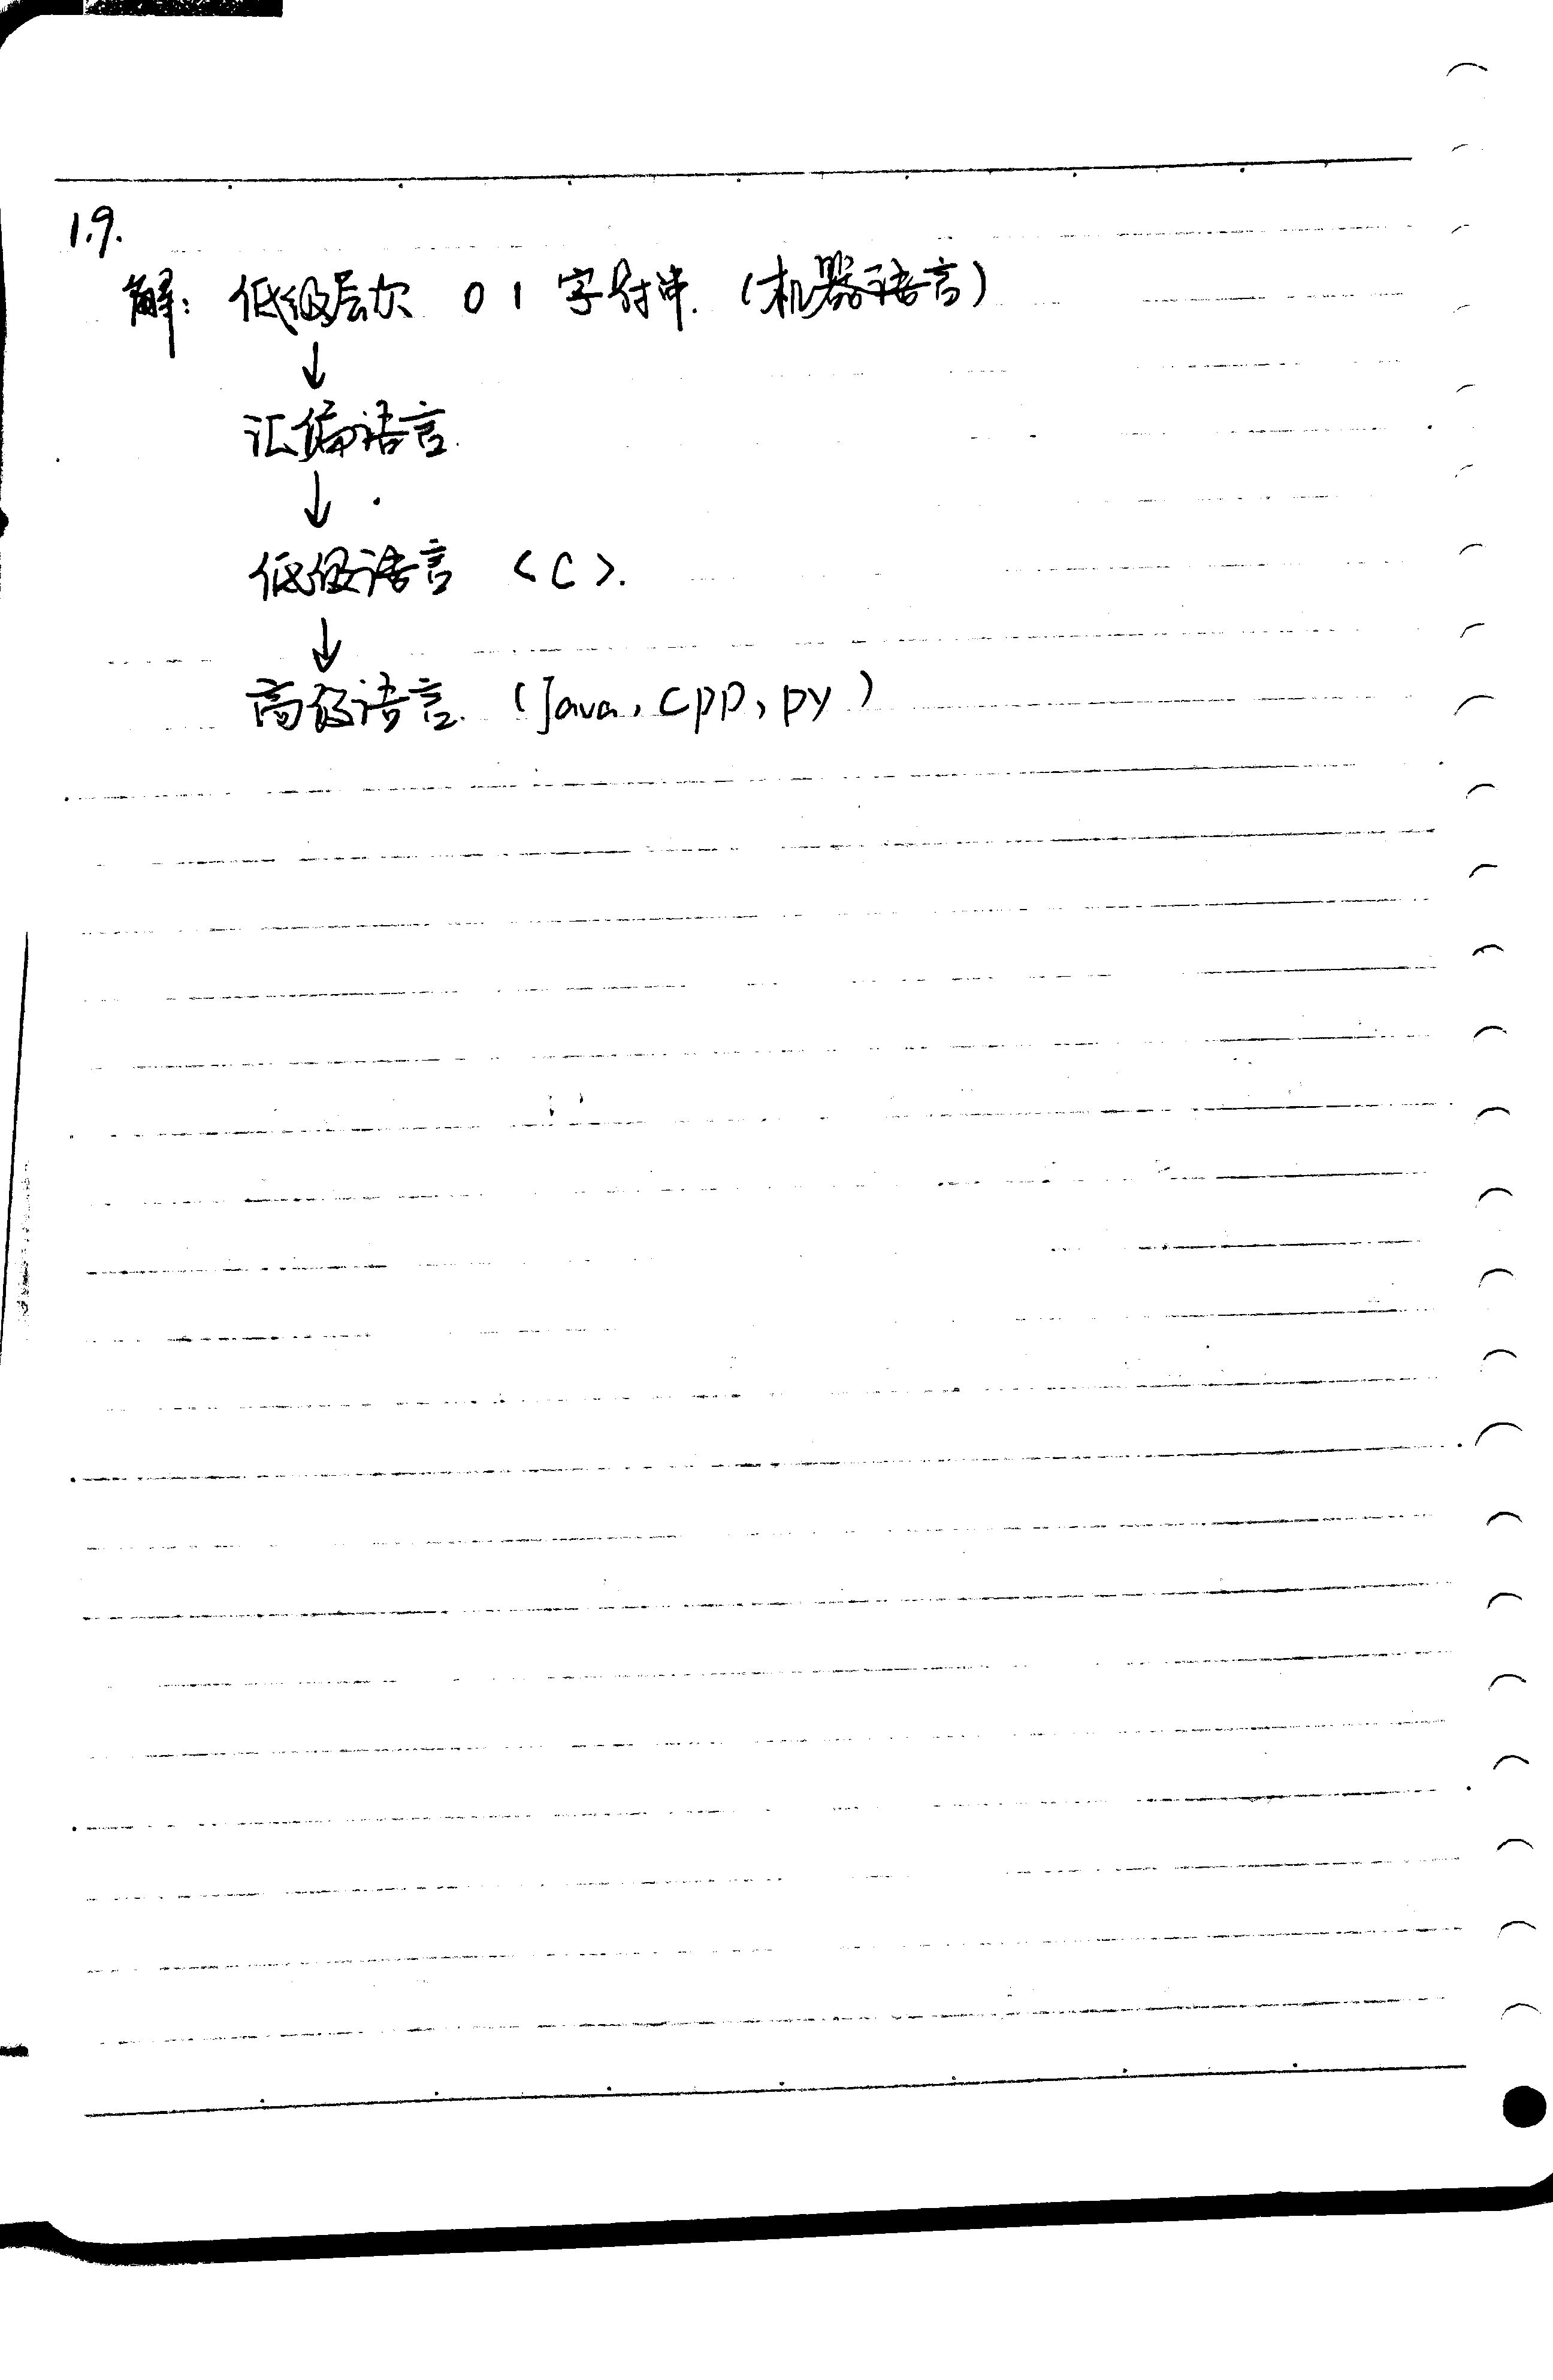 1.9.
解: 低级层次 0 1 字符串. (机器语言)
↓
汇编语言.
↓
低级语言 <C>.
↓
高级语言. (Java, cpp, py)